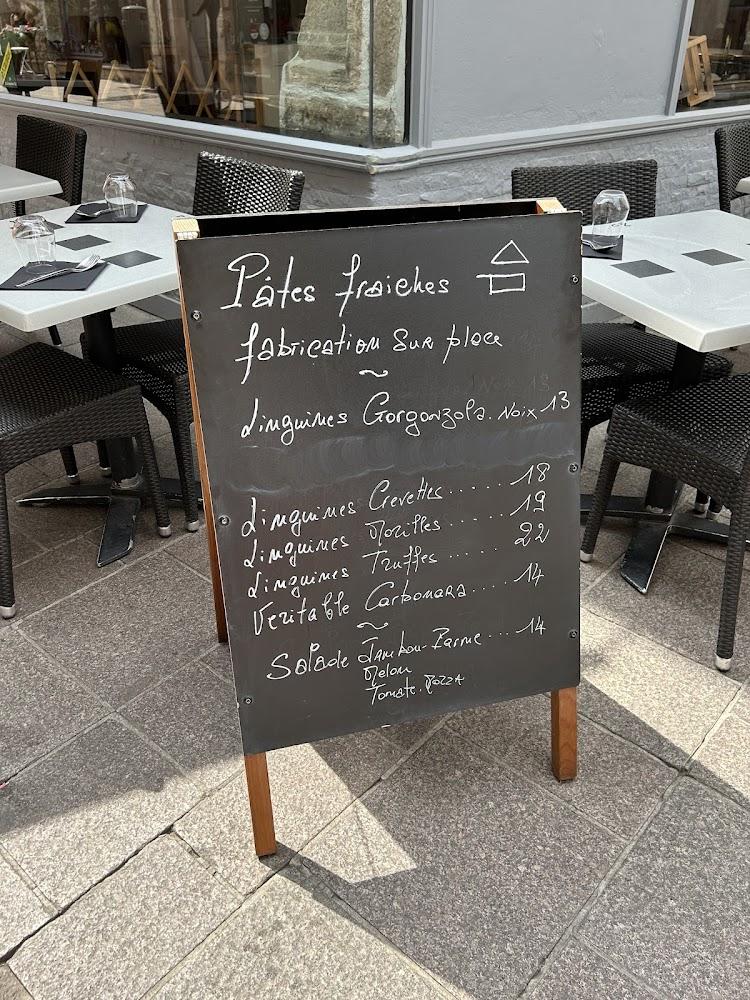 Pâtes fraiches
fabrication sur place
~
Linguines Gorgonzola. Noix 13
Linguines Crevettes...... 18
Linguines Morilles...... 19
Linguines Truffes...... 22
Veritable Carbonara.... 14
~
Salade Jambon-Parme... 14
Melon
Tomate. Mozza